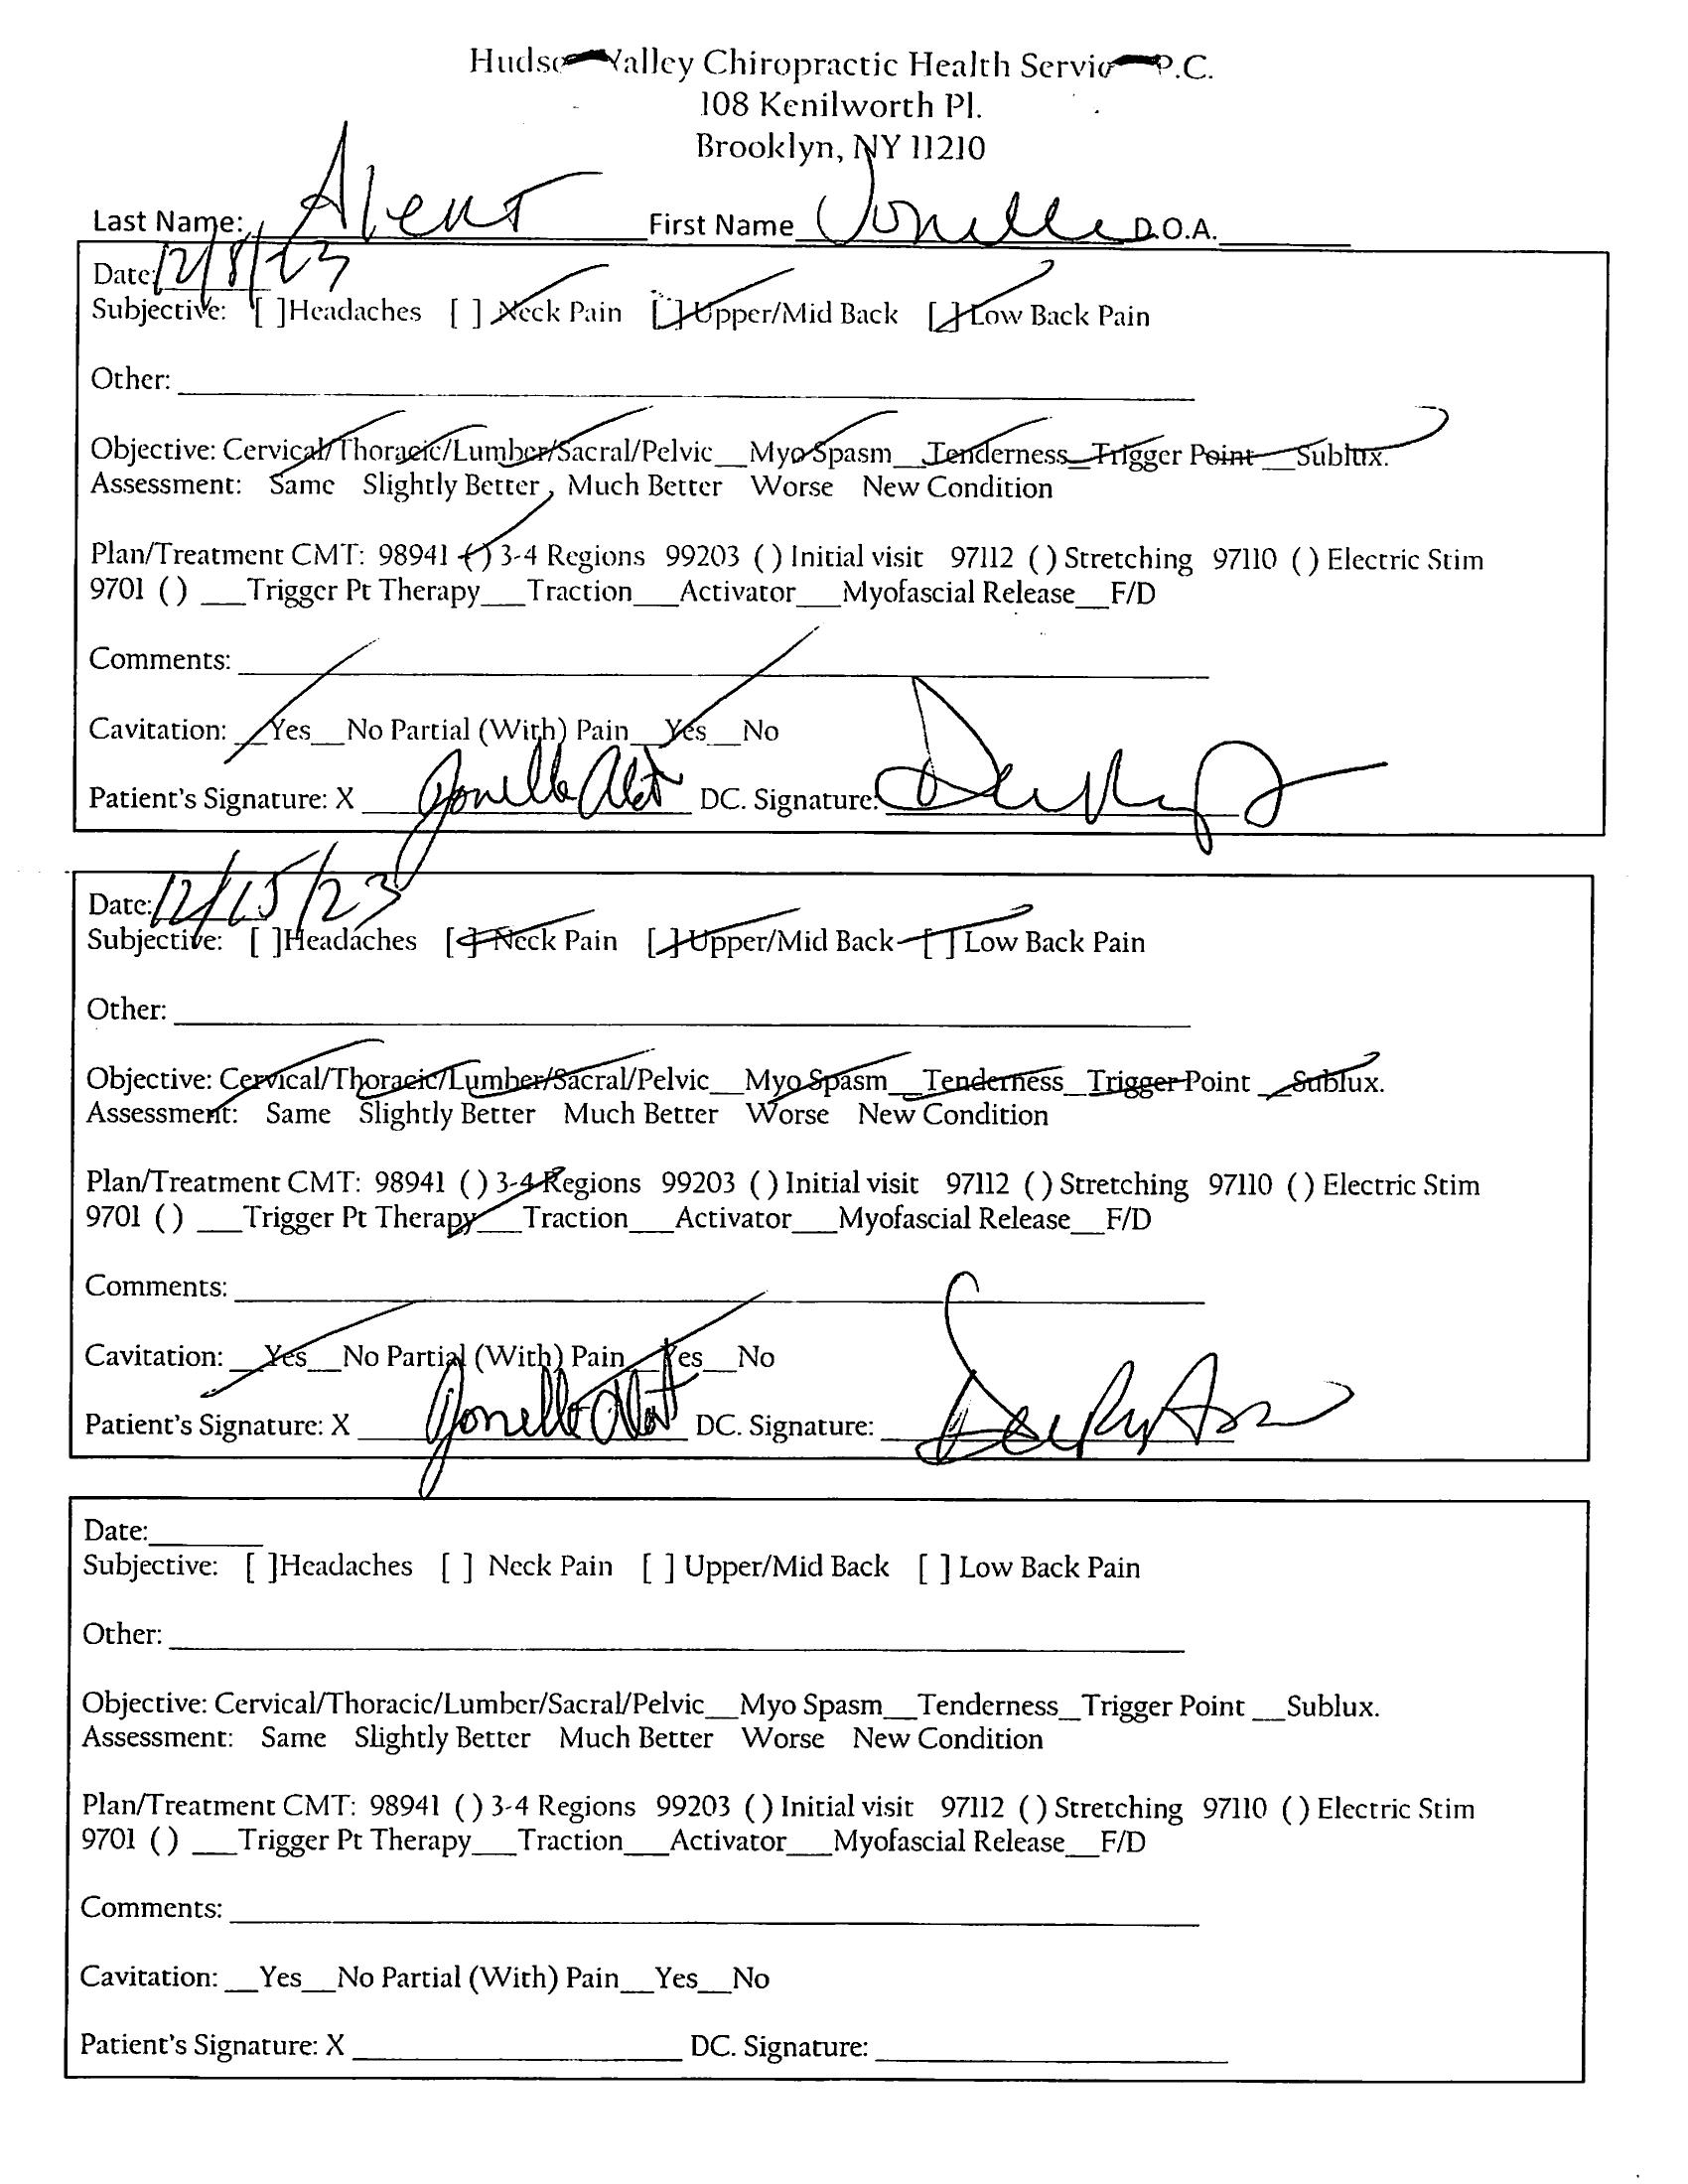 Hudson Valley Chiropractic Health Servic P.C.
108 Kenilworth Pl.
Brooklyn, NY 11210
Last Name: Alent First Name Jonelle D.O.A.
Date: 12/8/23
Subjective: [ ]Headaches [ ] Neck Pain [ ] Upper/Mid Back [ ] Low Back Pain
Other:
Objective: Cervical/Thoracic/Lumber/Sacral/Pelvic__Myo Spasm__Tenderness_Trigger Point __Sublux.
Assessment: Same Slightly Better Much Better Worse New Condition
Plan/Treatment CMT: 98941 ( ) 3-4 Regions 99203 ( ) Initial visit 97112 ( ) Stretching 97110 ( ) Electric Stim
9701 ( ) ___Trigger Pt Therapy___Traction___Activator___Myofascial Release__F/D
Comments:
Cavitation: __Yes__No Partial (With) Pain__Yes__No
Patient's Signature: X Jonelle Alent DC. Signature:
Date: 12/15/23
Subjective: [ ]Headaches [ ] Neck Pain [ ] Upper/Mid Back [ ] Low Back Pain
Other:
Objective: Cervical/Thoracic/Lumber/Sacral/Pelvic__Myo Spasm__Tenderness_Trigger Point __Sublux.
Assessment: Same Slightly Better Much Better Worse New Condition
Plan/Treatment CMT: 98941 ( ) 3-4 Regions 99203 ( ) Initial visit 97112 ( ) Stretching 97110 ( ) Electric Stim
9701 ( ) ___Trigger Pt Therapy___Traction___Activator___Myofascial Release__F/D
Comments:
Cavitation: __Yes__No Partial (With) Pain__Yes__No
Patient's Signature: X Jonelle Alent DC. Signature:
Date:
Subjective: [ ]Headaches [ ] Neck Pain [ ] Upper/Mid Back [ ] Low Back Pain
Other:
Objective: Cervical/Thoracic/Lumber/Sacral/Pelvic__Myo Spasm__Tenderness_Trigger Point __Sublux.
Assessment: Same Slightly Better Much Better Worse New Condition
Plan/Treatment CMT: 98941 ( ) 3-4 Regions 99203 ( ) Initial visit 97112 ( ) Stretching 97110 ( ) Electric Stim
9701 ( ) ___Trigger Pt Therapy___Traction___Activator___Myofascial Release__F/D
Comments:
Cavitation: __Yes__No Partial (With) Pain__Yes__No
Patient's Signature: X DC. Signature: